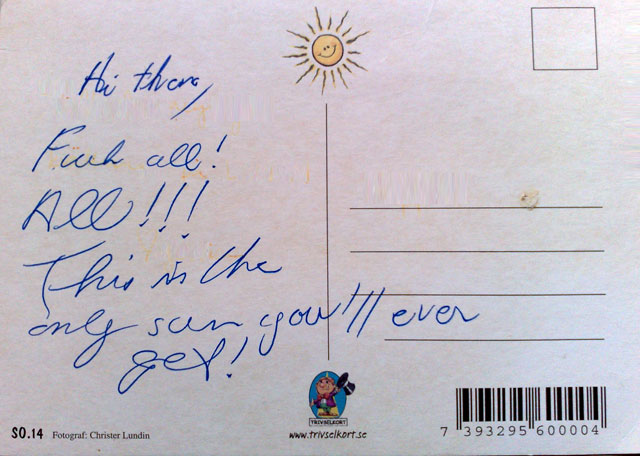 Hi there,
Fuck all!
All!!!
This is the
only sun you'll ever
get!
TRIVSELKORT
www.trivselkort.se
SO.14 Fotograf: Christer Lundin
7 393295 600004